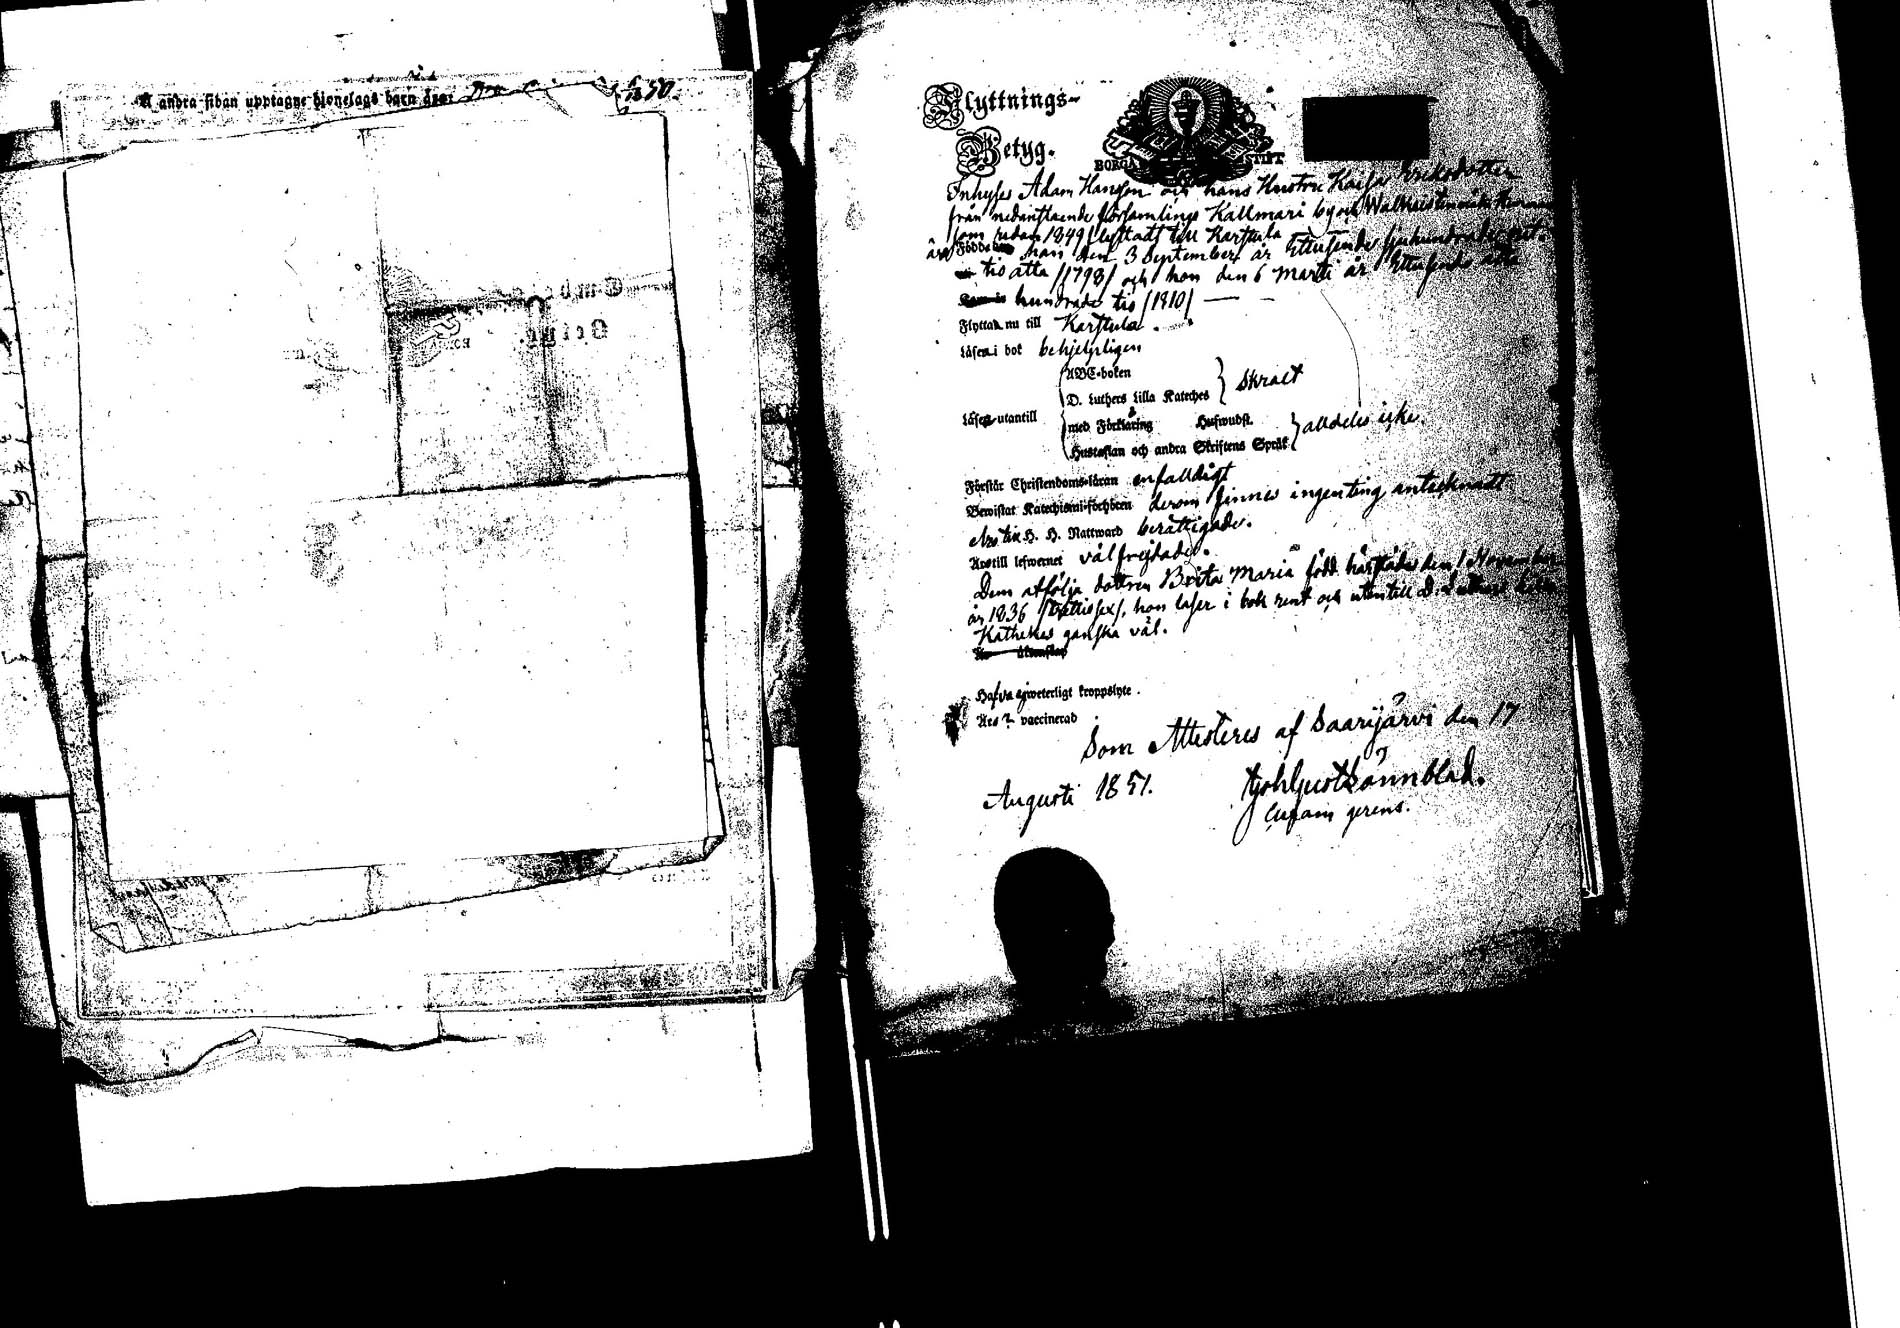 å andra sidan upptagne hionelags barn äro:
Flyttnings-
Betyg.
BORGÅ STIFT
Inhyses Adam Hansson och hans Hustru Kaisa Eriksdotter
från nedanstaende församlings Kallmari by och
som redan 1849 flyttadt till Karstula
äro Födde han den 3 September år Ettusende sjuhundrade
tio åtta /1798/ och hon den 6 Martii år Ettusende åtta
hundrade tio /1810/
Flytta nu till Karstula.
Läsa i bok behjelpligen
ABC-boken
D. Luthers Lilla Kateches } skralt
Läsa utantill
med Förklaring Husswudst.
Hustaflan och andra Skriftens Språk } alldeles icke.
Förstår Christendoms-läran enfaldigt
Bewistat Katechismi-förhören derom finnes ingenting antecknadt
Äro till H. H. Nattward berättigade.
Äro till lefwernet välfrejdade.
Dem atfölja dottren Brita Maria född härstädes den 1 November
år 1836 /trettisex/, hon läser i bok rent och utantill D. Luthers
Kathekes ganska väl.
Hafva ej weterligt kroppslyte.
Äro ? vaccinerad
Som Attesteras af Saarijärvi den 17
Augusti 1851.
Lönnblad.
Curam gerens.